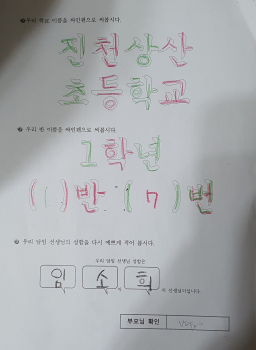 우리 학교 이름을 싸인펜으로 써봅시다.
진천상산
초등학교
우리 반 이름을 싸인펜으로 써봅시다.
1학년
(1)반 (17)번
우리 담임 선생님의 성함을 다시 예쁘게 적어 봅시다.
우리 담임 선생님 성함은
임 소 희 선생님이십니다.
부모님 확인